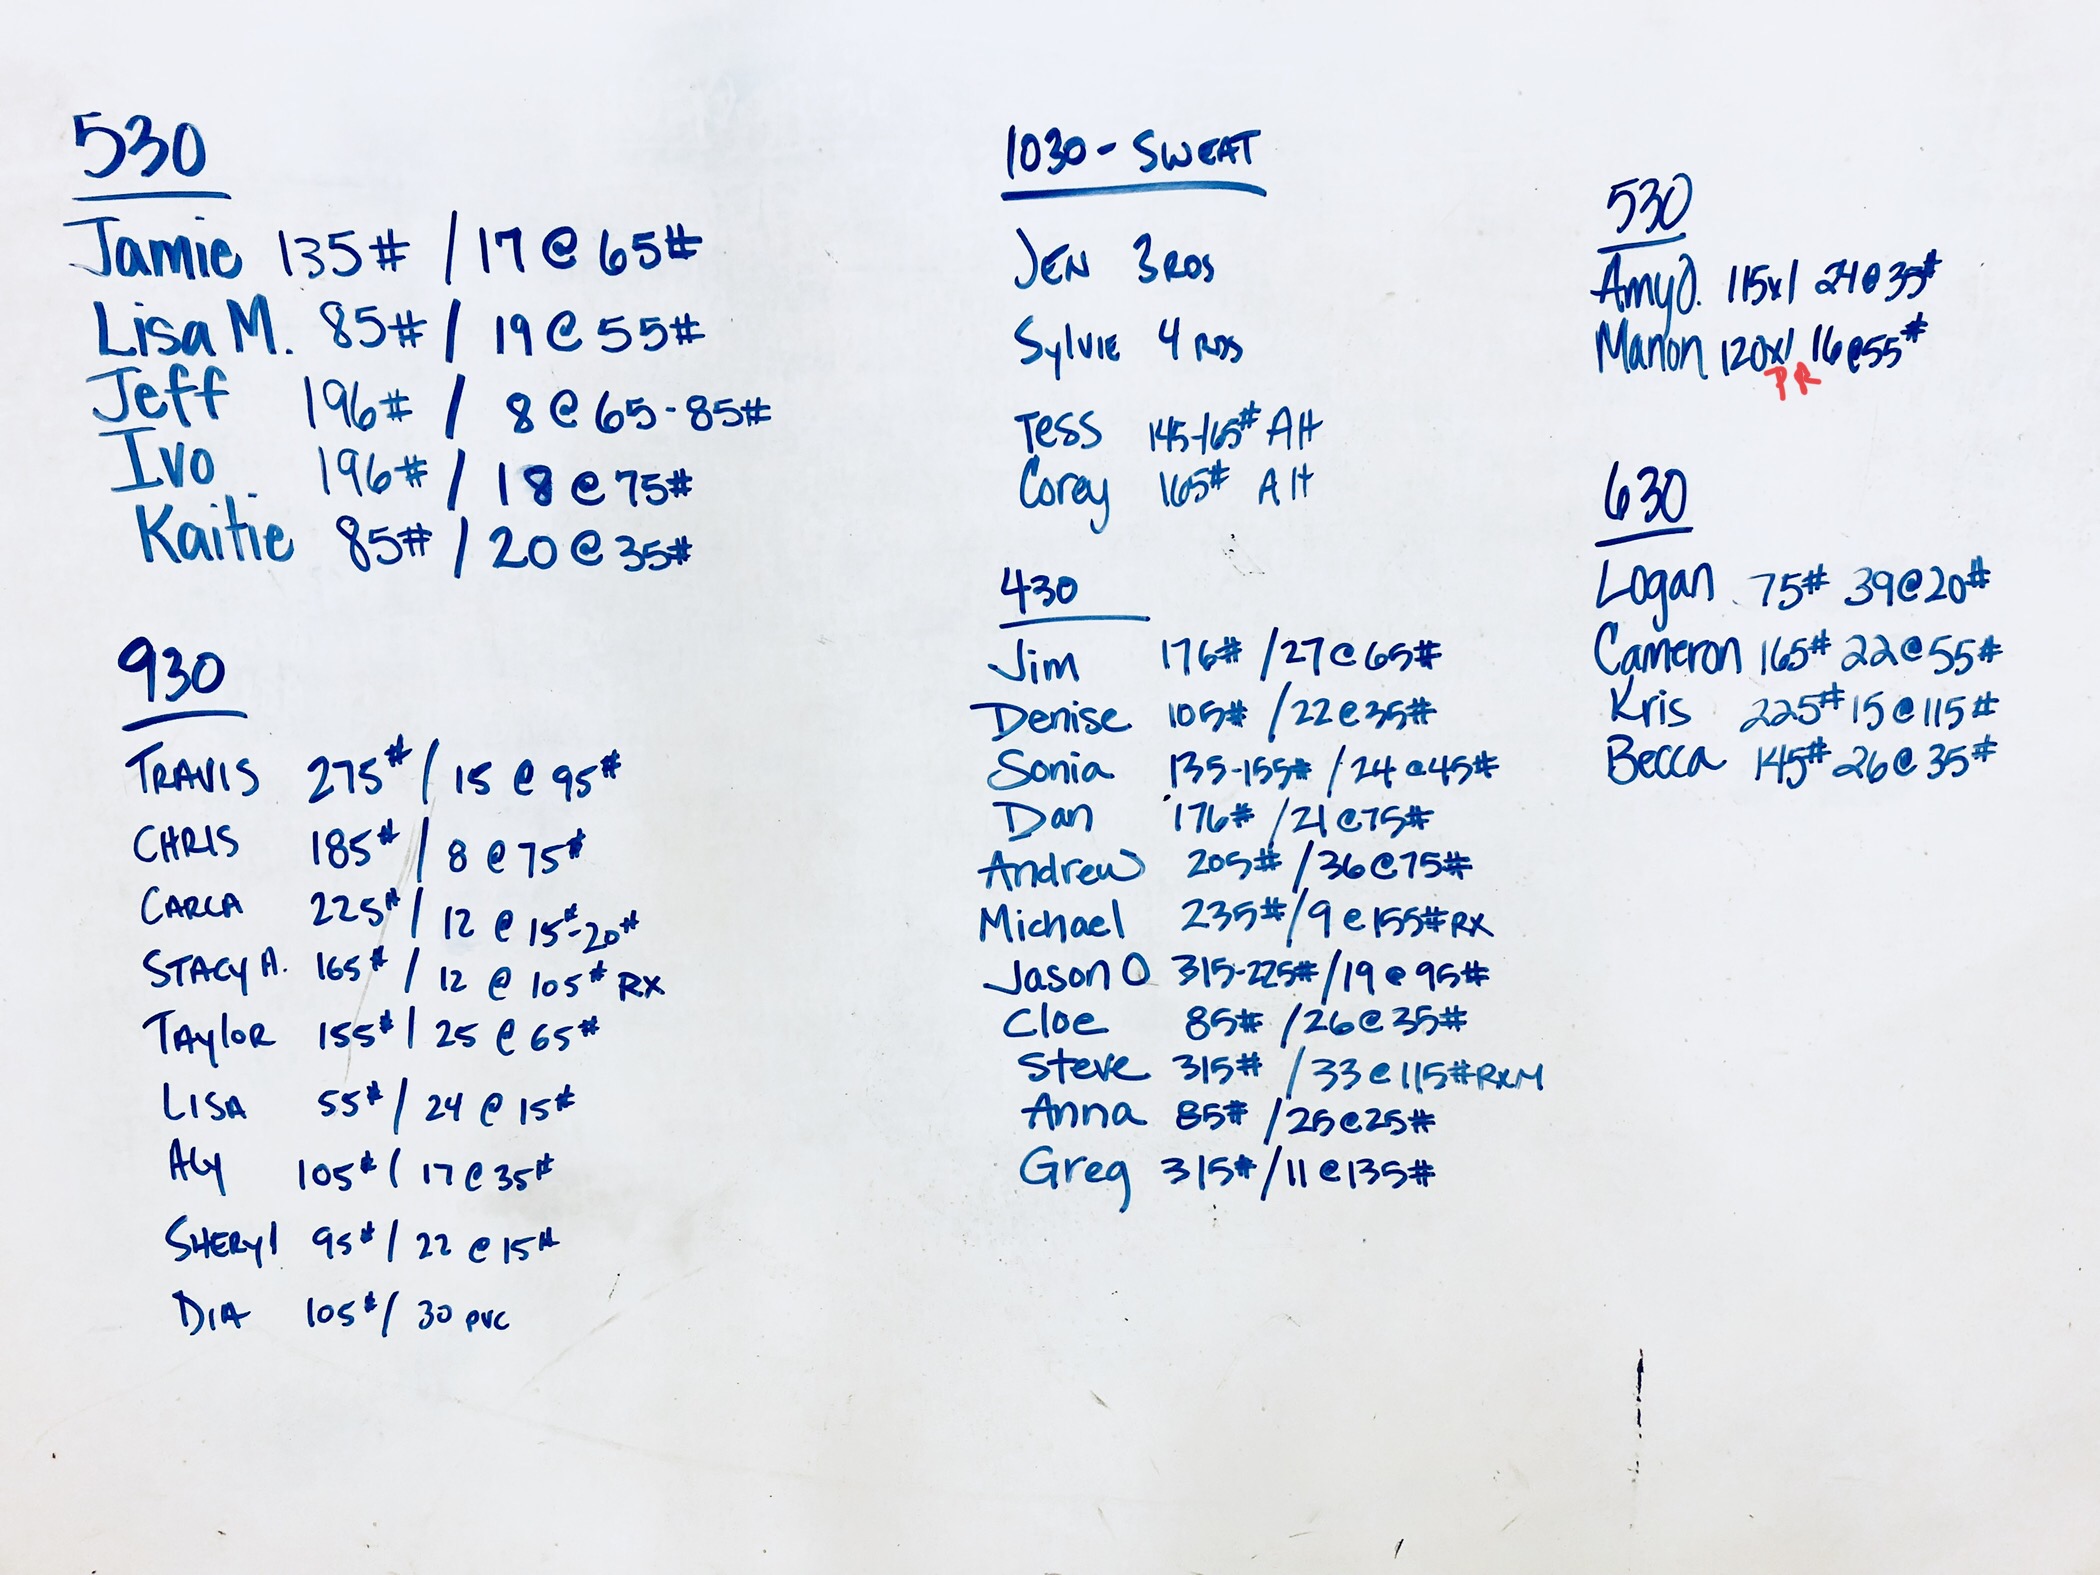 530
Jamie 135# / 17 @ 65#
Lisa M. 85# / 19 @ 55#
Jeff 196# / 8 @ 65-85#
Ivo 196# / 18 @ 75#
Kaitie 85# / 20 @ 35#
930
TRAVIS 275# / 15 @ 95#
CHRIS 185# / 8 @ 75#
CARLA 225# / 12 @ 15#-20#
STACY A. 165# / 12 @ 105# RX
TAYlOR 155# / 25 @ 65#
LISA 55# / 24 @ 15#
Aly 105# / 17 @ 35#
SHERYl 95# / 22 @ 15#
DIA 105# / 30 PVC
1030 - SWEAT
JEN 3 RDS
Sylvie 4 RDS
Tess 145-165# AH
Corey 165# AH
430
Jim 176# / 27 @ 65#
Denise 105# / 22 @ 35#
Sonia 135-155# / 24 @ 45#
Dan 176# / 21 @ 75#
Andrew 205# / 36 @ 75#
Michael 235# / 9 @ 155# RX
Jason O 315-225# / 19 @ 95#
Cloe 85# / 26 @ 35#
Steve 315# / 33 @ 115# RXM
Anna 85# / 25 @ 25#
Greg 315# / 11 @ 135#
530
Amy O. 115x1 24 @ 35#
Manon 120x1 16 @ 55#
PR
630
Logan 75# 39 @ 20#
Cameron 165# 22 @ 55#
Kris 225# 15 @ 115#
Becca 145# 26 @ 35#